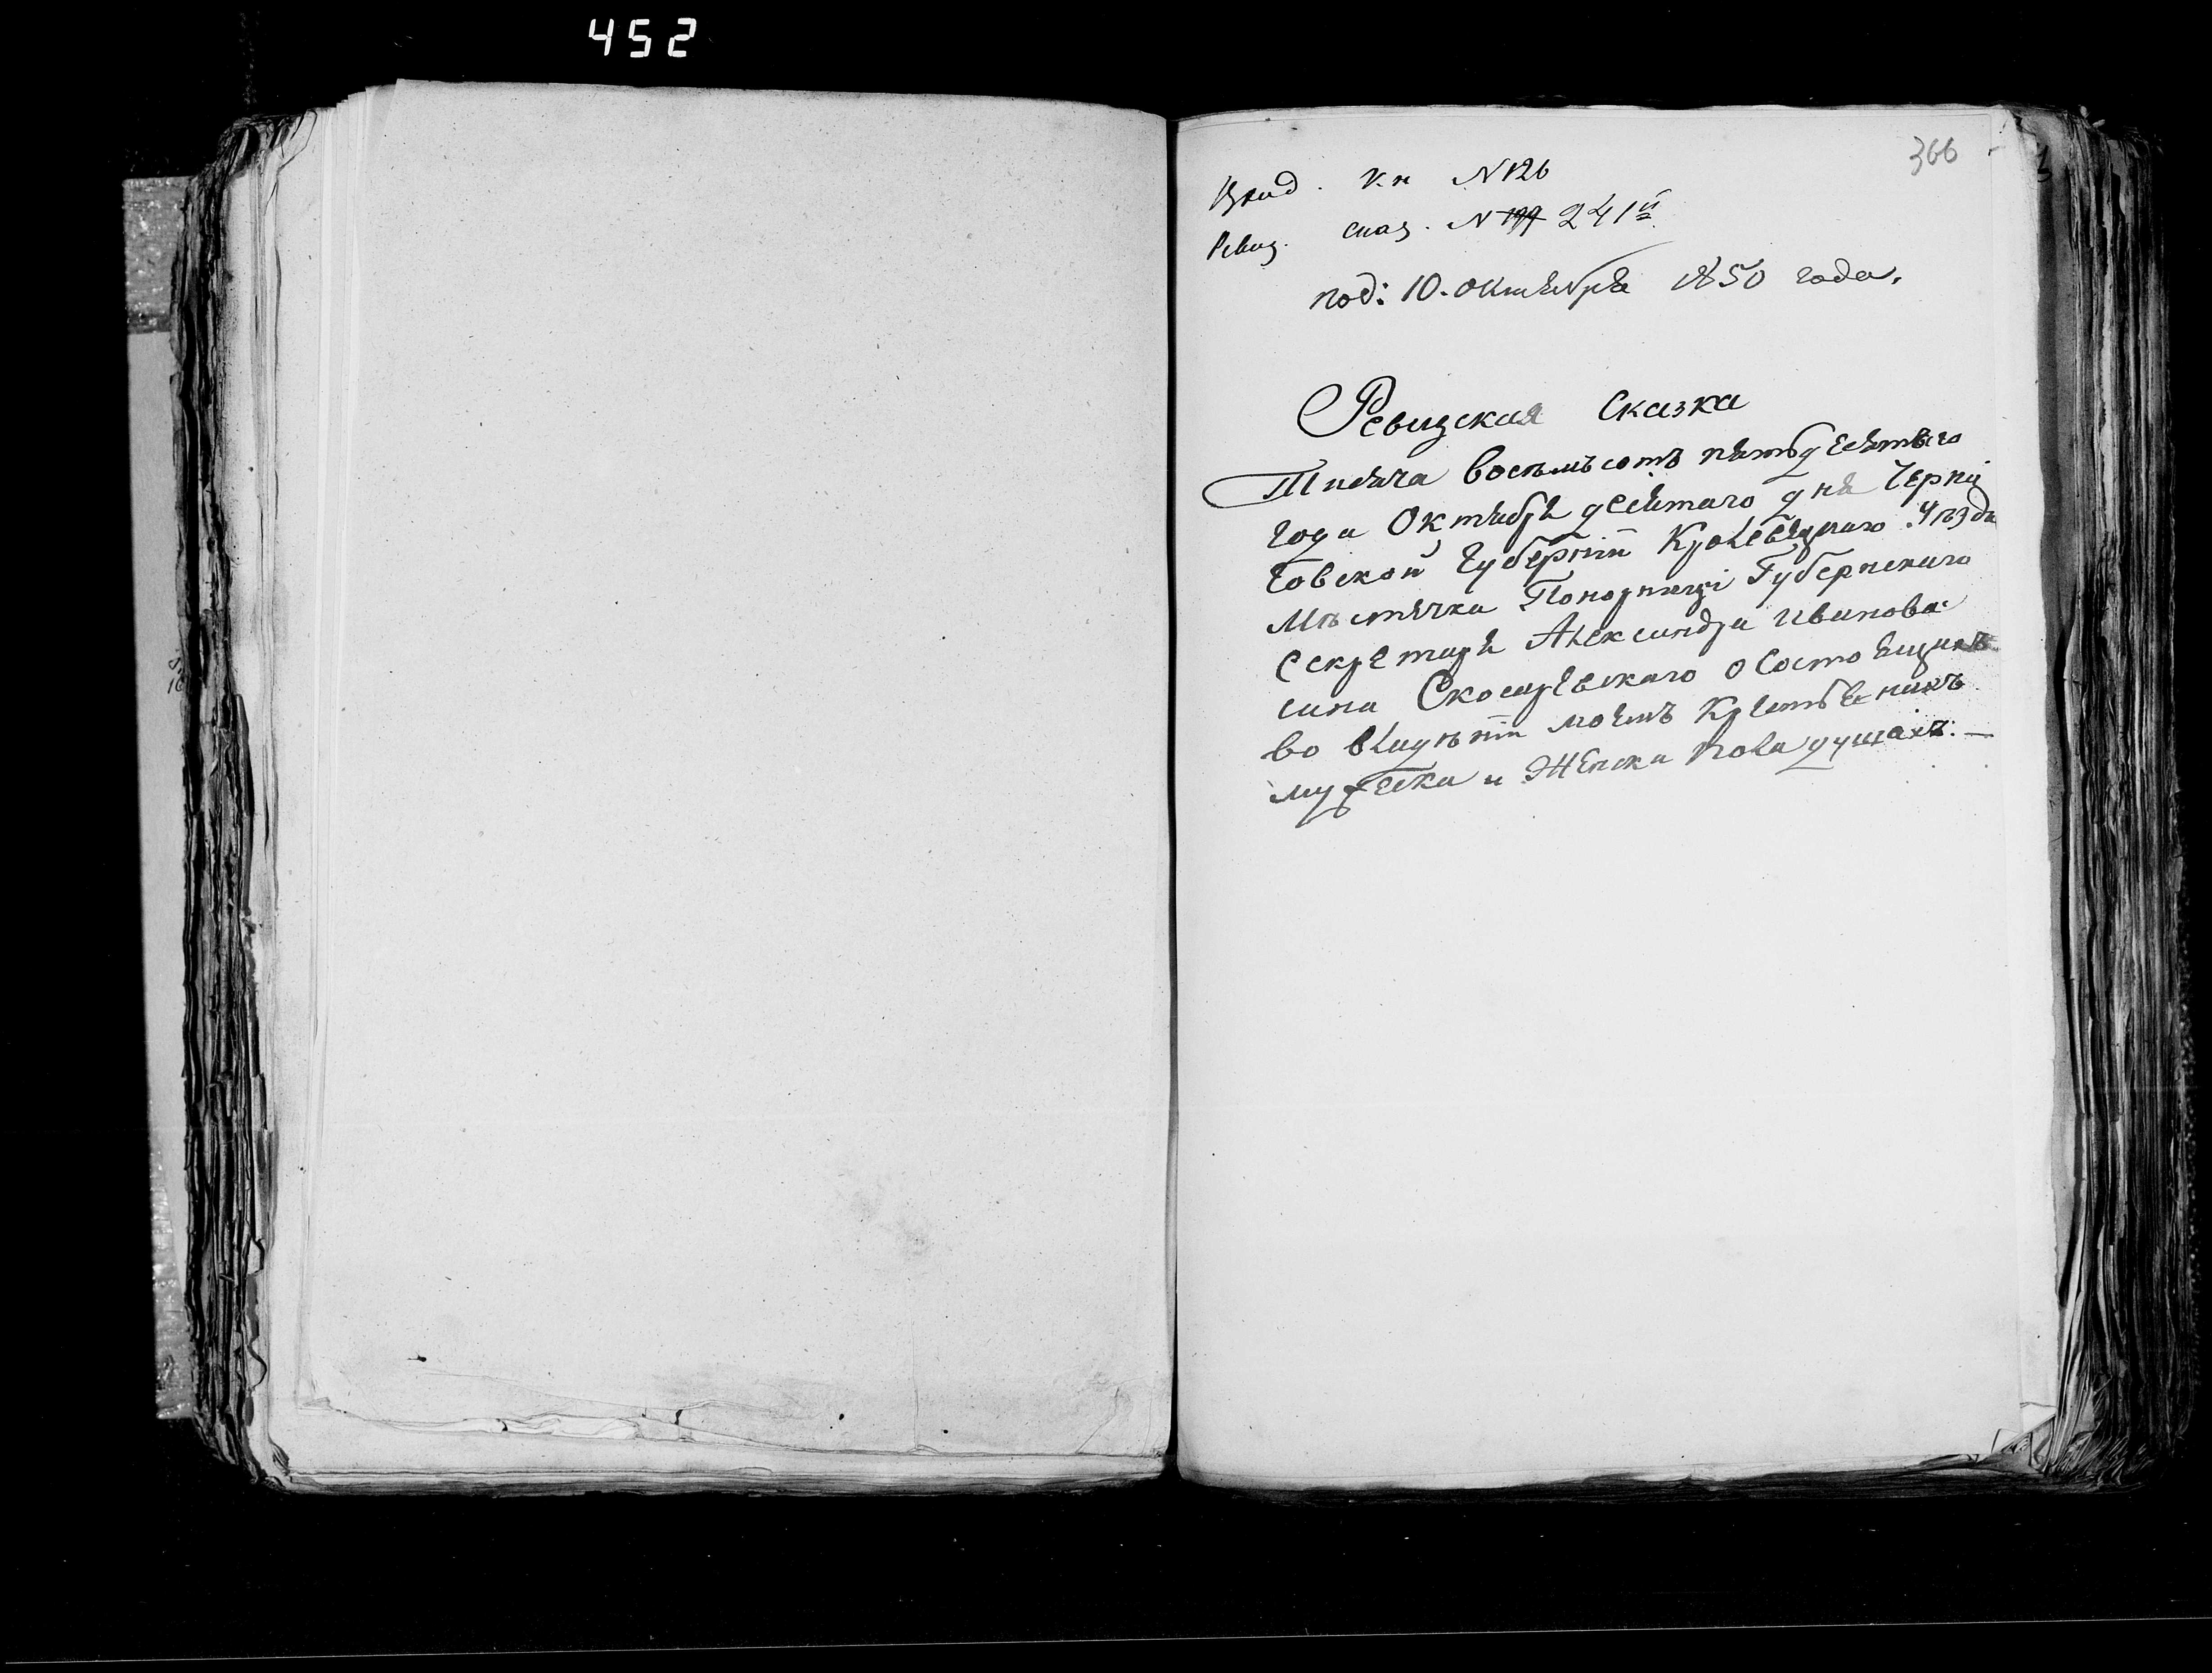 452
366
Вход. К. н N 126
Ревиз. сказ. N 199 241й
под: 10. октября 1850 года.
Ревизская Сказка
Тисяча восемьсотъ пятьдесятого
года Октября десятаго дня Черни
говской Губернiи Кролевецкаго Уезда
Мѣстечка Понорници Губернскаго
Секретаря Александра Иванова
сина Скосиревскаго о состоящихъ
во владѣнiи моемъ Крестьянихъ
мужеска и Женска пола душахъ. —